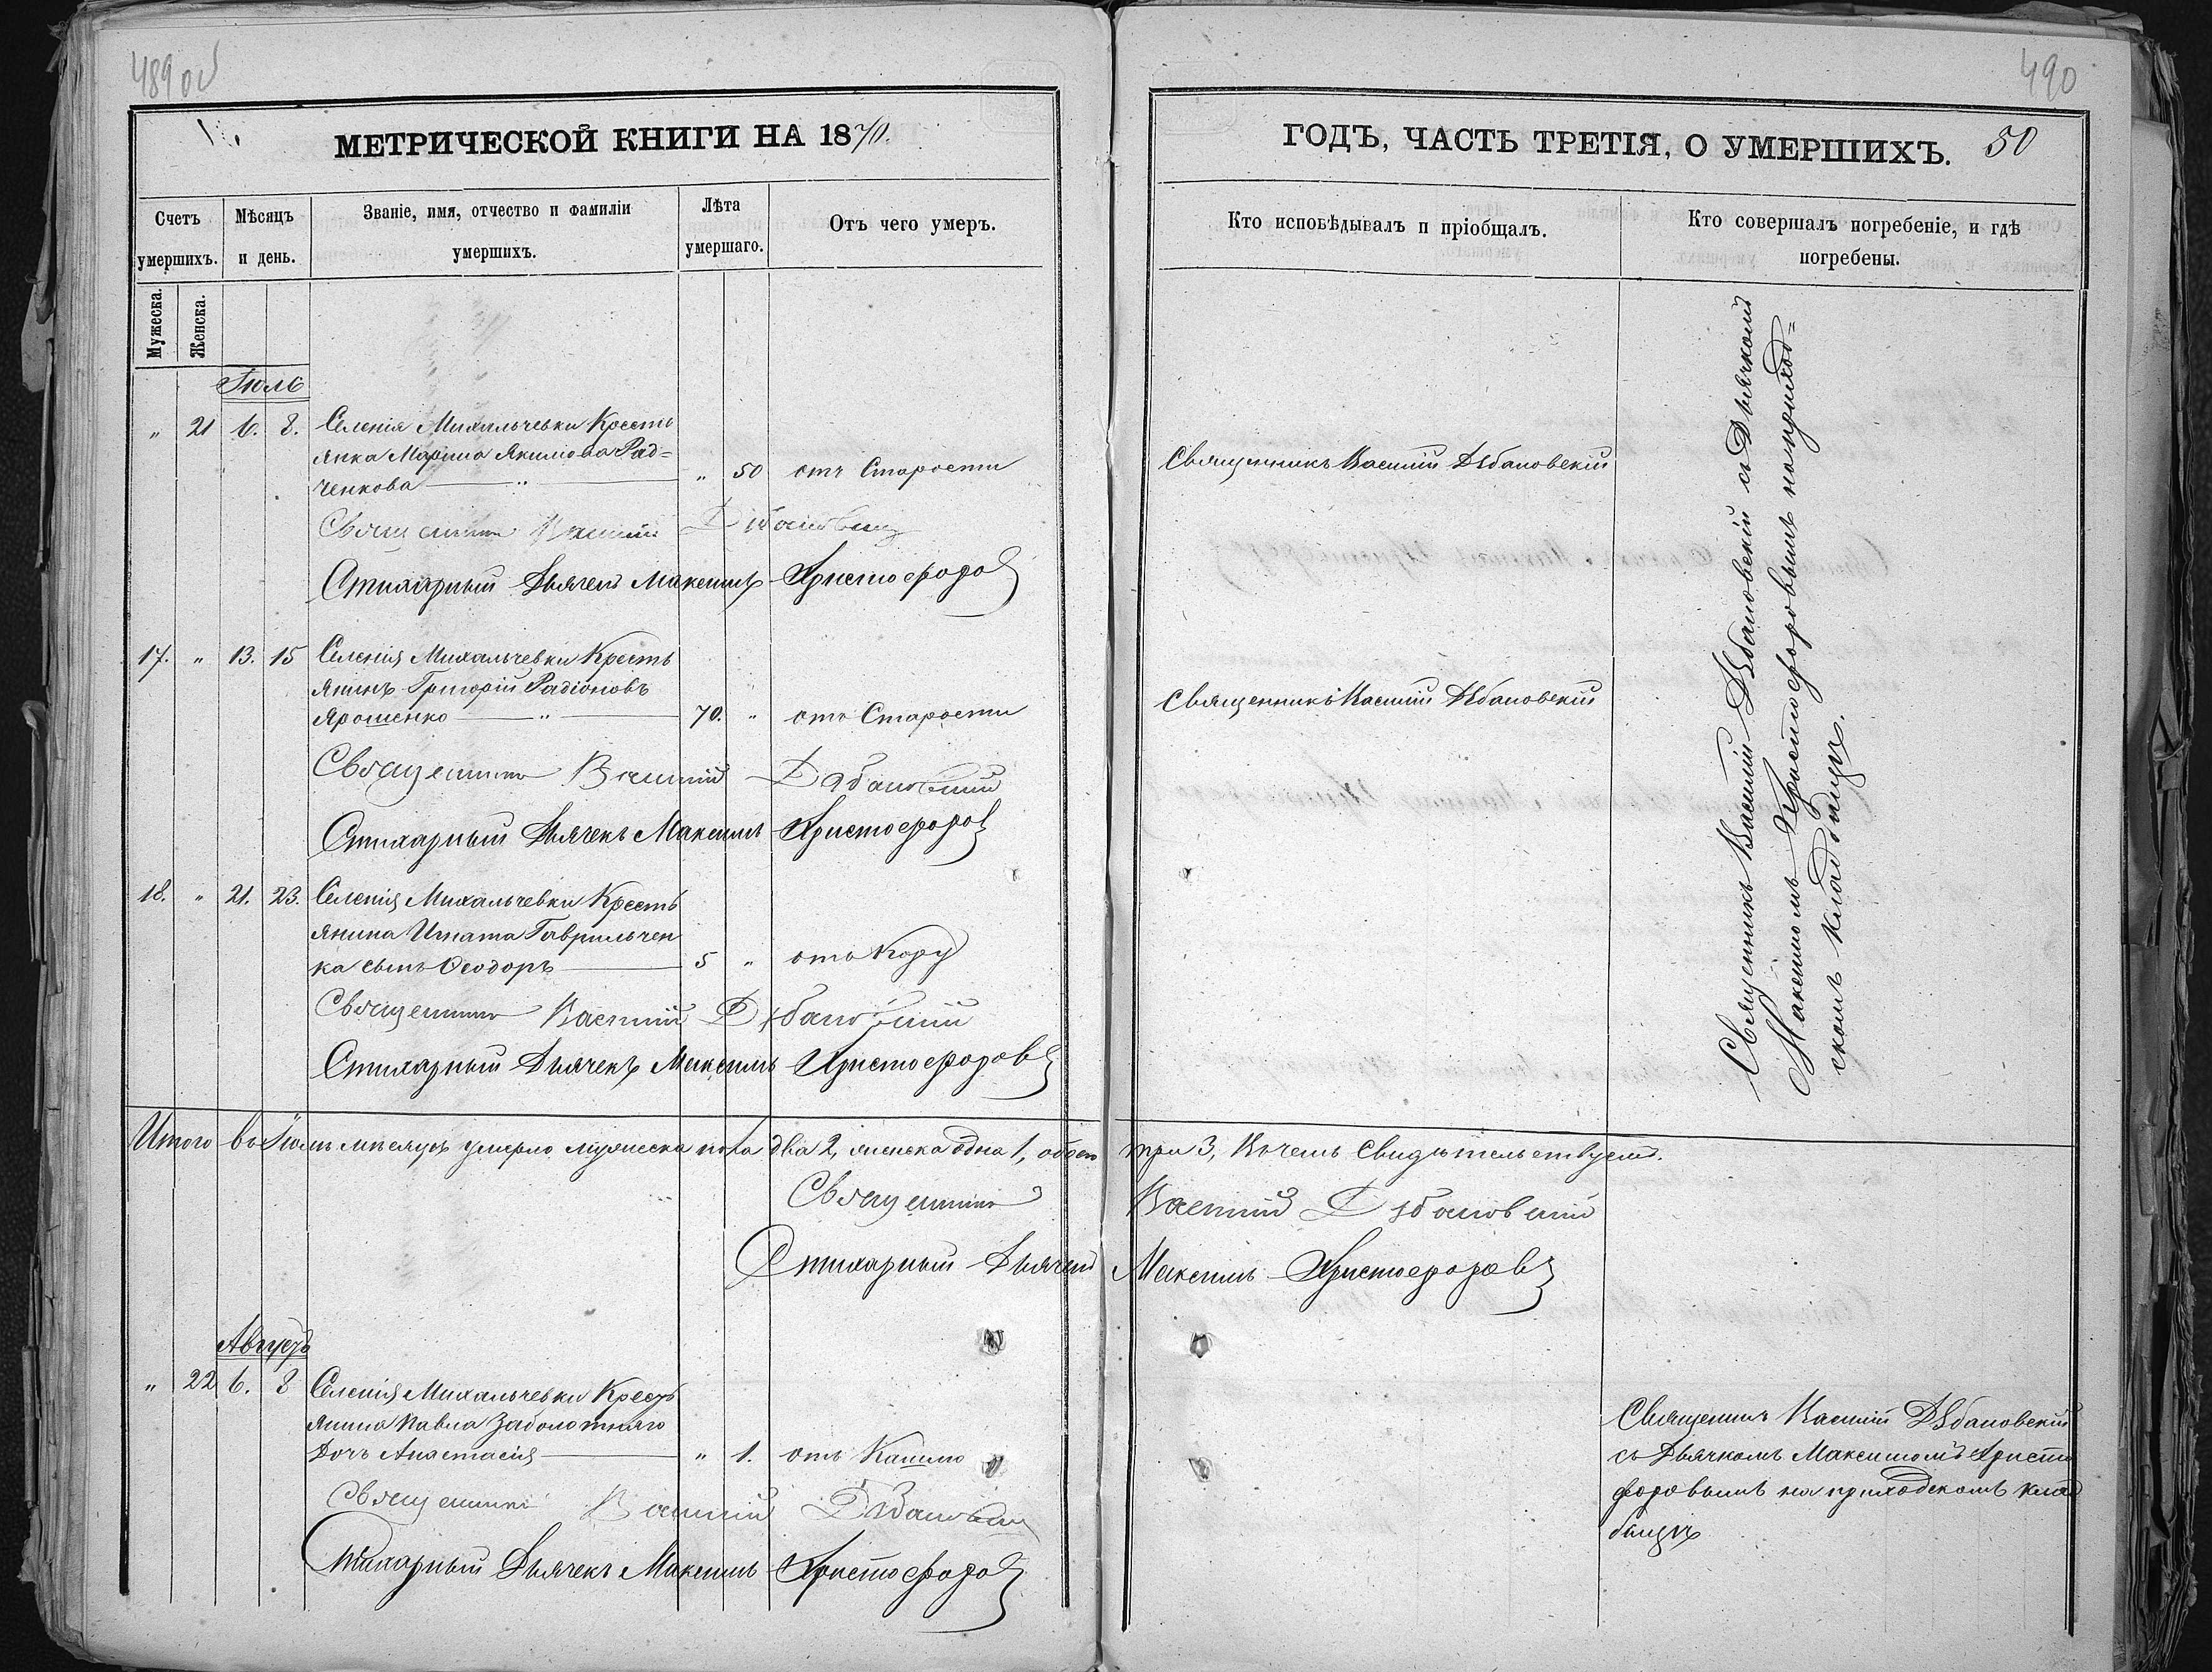 489 об
490
МЕТРИЧЕСКОЙ КНИГИ НА 1870.
ГОДЪ, ЧАСТЬ ТРЕТІЯ, О УМЕРШИХЪ. 50
Счетъ умершихъ.
Мѣсяцъ и день.
Званіе, имя, отчество и фамиліи умершихъ.
Лѣта умершаго.
Отъ чего умеръ.
Кто исповѣдывалъ и пріобщалъ.
Кто совершалъ погребеніе, и гдѣ погребены.
Мужеска.
Женска.
Іюль
„ 21 6. 8. Селенія Михальчевки Кресть
янка Марина Якимова Рад=
ченкова „ 50 отъ Старости
Священникъ Василій Дѣбановскій
Священникъ Василій Дѣбановскій
Стихарный Дьячекъ Максимъ Христофоровъ
17. „ 13. 15 Селенія Михальчевки Кресть
янинъ Григорій Радіоновъ
Ярошенко 70. „ отъ Старости
Священникъ Василій Дѣбановскій
Священникъ Василій Дѣбановскій
Стихарный Дьячекъ Максимъ Христофоровъ
18. „ 21. 23. Селенія Михальчевки Кресть
янина Игната Гаврильчен
ка сынъ Ѳеодоръ 5 „ отъ Кору
Священникъ Василій Дѣбановскій
Стихарный Дьячекъ Максимъ Христофоровъ
Священникъ Василій Дѣбановскій съ Дьячкомъ
Максимомъ Христофоровымъ на приход=
скомъ кладбищѣ.
Итого въ Іюлѣ мѣсяцѣ умерло мужеска пола два 2, женска одна 1, обоего три 3, В чемъ Свидѣтельствуемъ.
Священникъ Василій Дѣбановскій
Стихарный Дьячекъ Максимъ Христофоровъ
Августъ
„ 22 6. 8 Селенія Михальчевки Кресть
янина Павла Заболотняго
Дочь Анастасія „ 1. отъ Кашлю
Священникъ Василій Дѣбановскій
Стихарный Дьячекъ Максимъ Христофоровъ
Священникъ Василій Дѣбановскій
съ Дьячкомъ Максимомъ Христо
форовымъ на приходскомъ клад
бищѣ